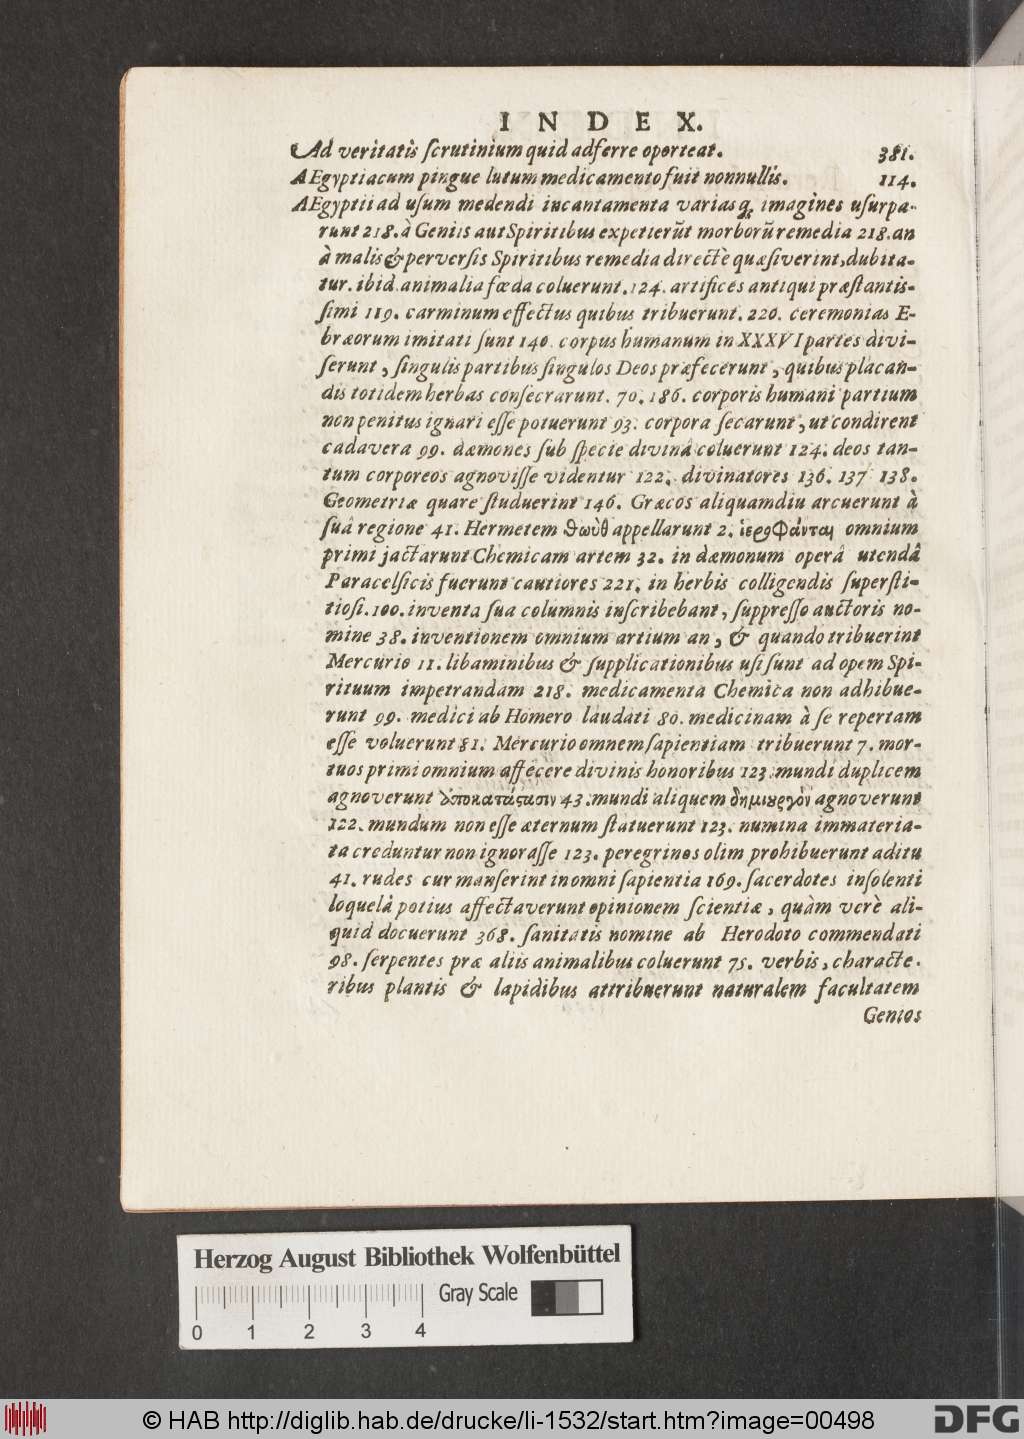 INDEX.
Ad veritatis ſcrutinium quid adferre oporteat. 381.
AEgyptiacum pingue lutum medicamento fuit nonnullis. 114.
AEgyptii ad uſum medendi incantamenta variasq; imagines uſurpa-
runt 218. à Geniis aut Spiritibus expetierūt morborū remedia 218. an
à malis & perverſis Spiritibus remedia directè quæſiverint, dubita-
tur. ibid. animalia fœda coluerunt. 124. artifices antiqui præſtantis-
ſimi 119. carminum effectus quibus tribuerunt. 220. ceremonias E-
bræorum imitati ſunt 140. corpus humanum in XXXVI partes divi-
ſerunt, ſingulis partibus ſingulos Deos præfecerunt, quibus placan-
dis totidem herbas conſecrarunt. 70. 186. corporis humani partium
non penitus ignari eſſe potuerunt 93. corpora ſecarunt, ut condirent
cadavera 99. dæmones ſub ſpecie divinâ coluerunt 124. deos tan-
tum corporeos agnoviſſe videntur 122. divinatores 136. 137 138.
Geometriæ quare ſtuduerint 146. Græcos aliquamdiu arcuerunt à
ſuâ regione 41. Hermetem θωὺθ appellarunt 2. ἱεροφάνται omnium
primi jactarunt Chemicam artem 32. in dæmonum operâ utendâ
Paracelſicis fuerunt cautiores 221. in herbis colligendis ſuperſti-
tioſi. 100. inventa ſua columnis inſcribebant, ſuppreſſo auctoris no-
mine 38. inventionem omnium artium an, & quando tribuerint
Mercurio 11. libaminibus & ſupplicationibus uſi ſunt ad opem Spi-
rituum impetrandam 218. medicamenta Chemica non adhibue-
runt 99. medici ab Homero laudati 80. medicinam à ſe repertam
eſſe voluerunt 81. Mercurio omnem ſapientiam tribuerunt 7. mor-
tuos primi omnium affecere divinis honoribus 123. mundi duplicem
agnoverunt ἀποκατάϛασιν 43. mundi aliquem δημιȣργὸν agnoverunt
122. mundum non eſſe æternum ſtatuerunt 123. numina immateria-
ta creduntur non ignoraſſe 123. peregrinos olim prohibuerunt aditu
41. rudes cur manſerint in omni ſapientia 169. ſacerdotes inſolenti
loquelâ potius affectaverunt opinionem ſcientiæ, quàm verè ali-
quid docuerunt 368. ſanitatis nomine ab Herodoto commendati
98. ſerpentes præ aliis animalibus coluerunt 75. verbis, characte-
ribus plantis & lapidibus attribuerunt naturalem facultatem
Genios
Herzog August Bibliothek Wolfenbüttel
Gray Scale
0 1 2 3 4
© HAB http://diglib.hab.de/drucke/li-1532/start.htm?image=00498
DFG